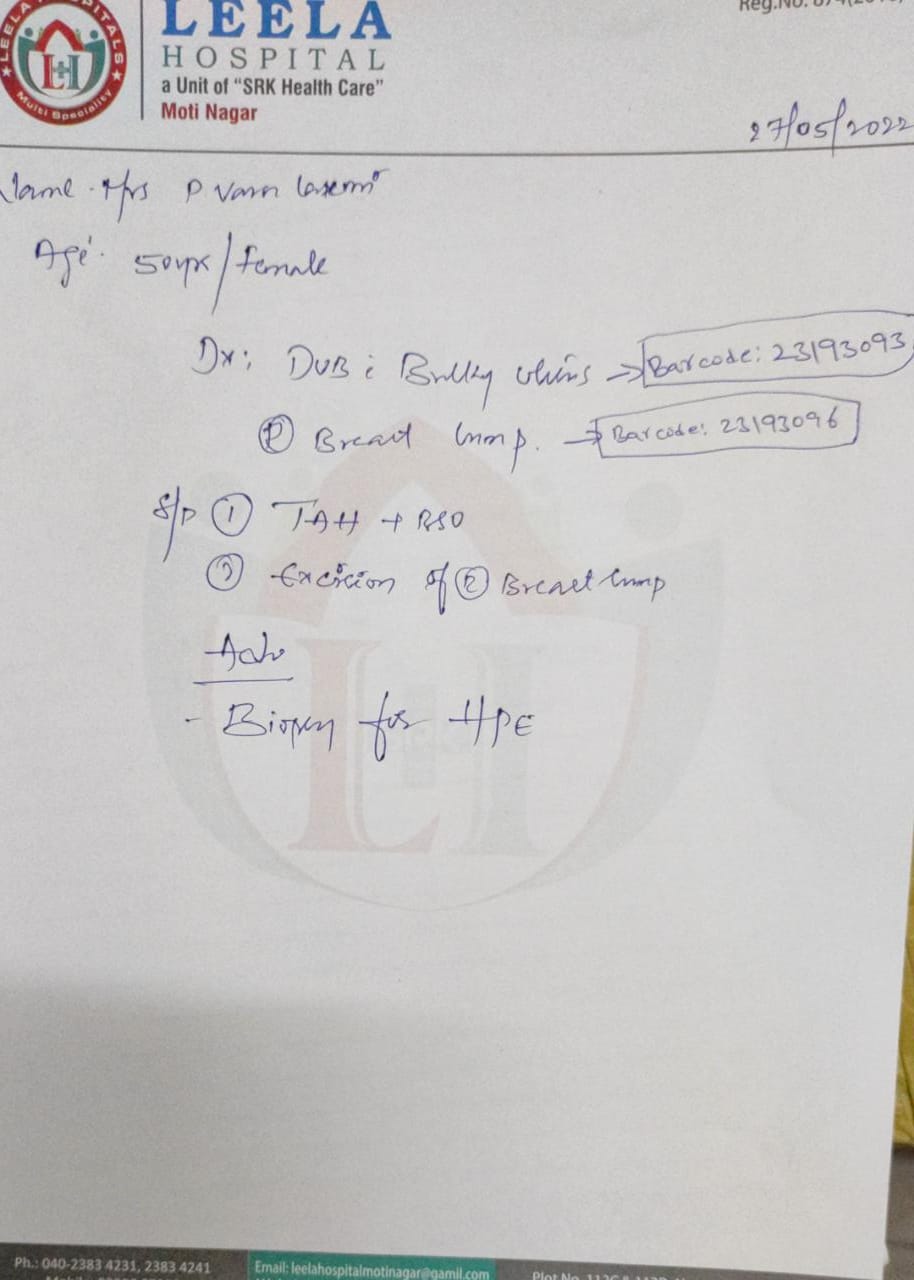 LEELA HOSPITALS
Multi Speciality
LEELA
HOSPITAL
a Unit of "SRK Health Care"
Moti Nagar
Reg.No.
27/05/2022
Name. Mrs P
Age. 50yrs/Female
Dx: DUB c Bulky uterus → Barcode: 23193093
Ⓡ Breast lump. → Barcode: 23193096
S/P ① TAH + BSO
② Excision of Ⓡ Breast lump
Adv
- Biopsy for HPE
Ph.: 040-2383 4231, 2383 4241
Email: leelahospitalmotinagar@gamil.com
Plot No.